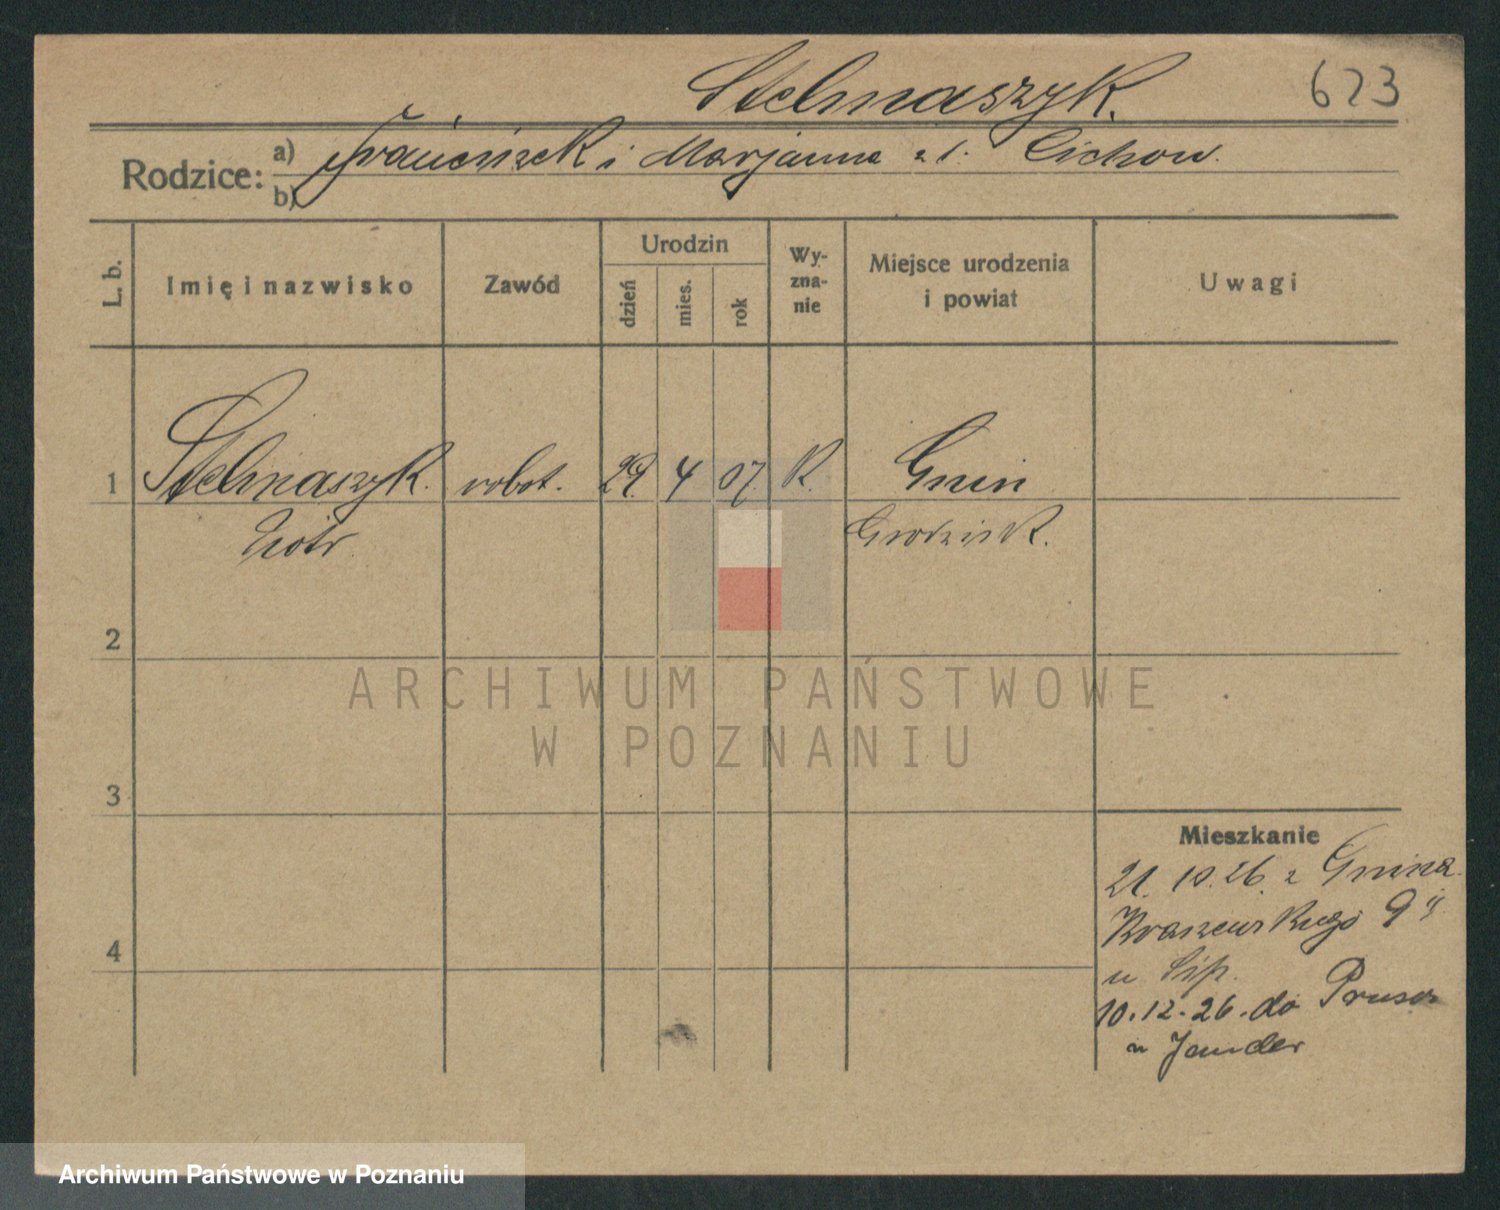 Stelmaszyk.
623
Rodzice:
a) Franciszek i Marjanna z d. Cichow.
b)
L. b.
Imię i nazwisko
Zawód
Urodzin
dzień
mies.
rok
Wy-
zna-
nie
Miejsce urodzenia
i powiat
Uwagi
1 Stelmaszyk. robot. 29. 4 07 R. Gnin
Piotr. Grodzisk.
2
ARCHIWUM PAŃSTWOWE
W POZNANIU
3
Mieszkanie
21. 10. 26. z Gnina
Kraszewskiego 9
4
u Lip.
10.12.26. do
u Jander
Archiwum Państwowe w Poznaniu